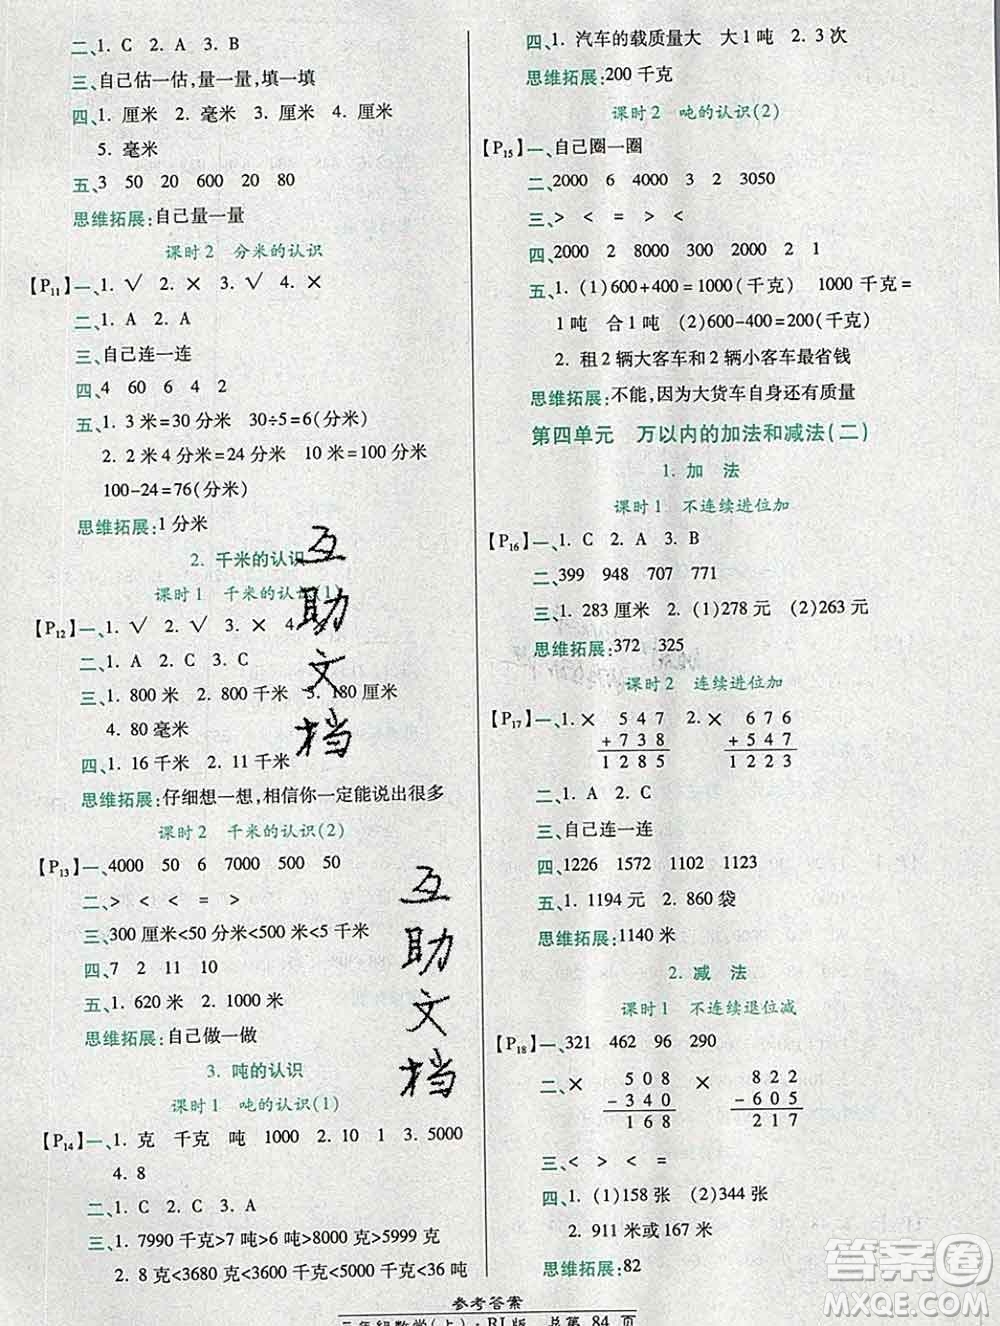 二、1. C 2. A 3. B
三、自己估一估,量一量,填一填
四、1. 厘米 2. 毫米 3. 厘米 4. 厘米
5. 毫米
五、3 50 20 600 20 80
思维拓展:自己量一量
课时2 分米的认识
【P11】一、1. √ 2. × 3. √ 4. ×
二、1. A 2. A 3. C
三、自己连一连
四、4 60 6 4 2
五、1. 3 米=30 分米 30÷5=6(分米)
2. 2 米 4 分米=24 分米 10 米=100 分米
100-24=76(分米)
思维拓展:1 分米
2. 千米的认识
课时1 千米的认识(1)
【P12】一、1. √ 2. √ 3. × 4.
二、1. C 2. C 3. C
三、1. 800 米 2. 750 千米 3. 180 厘米
4. 80 毫米
四、1. 16 千米 2. 11 千米
思维拓展:仔细想一想,相信你一定能说出很多
课时2 千米的认识(2)
【P13】一、4000 50 6 7000 500 50
二、> < < = >
三、300 厘米<50 分米<500 米<5 千米
四、7 2 11 10
五、1. 620 米 2. 1000 米
思维拓展:自己做一做
3. 吨的认识
课时1 吨的认识(1)
【P14】一、1. 克 千克 吨 1000 2. 10 1 3. 5000
4. 8
二、1. C 2. C 3. A
三、1. 7990 千克>7 吨>6 吨>6000 克>5999 克
2. 8 克<3680 克<6 千克<12 千克<36 吨
四、1. 汽车的载质量大 大 1 吨 2. 3 次
思维拓展:200 千克
课时2 吨的认识(2)
【P15】一、自己圈一圈
二、2000 6 4000 3 2 3050
三、> < = > <
四、2000 2 8000 300 2000 2
五、1. (1)600+400=1000(千克) 1000 千克=
1 吨 合 1 吨 (2)600-400=200(千克)
2. 租 2 辆大客车和 2 辆小客车最省钱
思维拓展:不能,因为大货车自身还有质量
第四单元 万以内的加法和减法(二)
1. 加 法
课时1 不连续进位加
【P16】一、1. C 2. A 3. B
二、399 948 707 771
三、1. 283 厘米 2. (1)278 元 (2)263 元
思维拓展:372 325
课时2 连续进位加
【P17】一、1. × 547 2. × 676
+738 +547
1285 1223
二、1. A 2. C
三、自己连一连
四、1226 1572 1102 1123
五、1. 1194 元 2. 860 袋
思维拓展:1140 米
2. 减 法
课时1 不连续退位减
【P18】一、321 462 96 290
二、× 508 × 822
-340 -605
168 217
三、< > < =
四、1. (1)158 张 (2)344 张
2. 911 米或 167 米
思维拓展:82
互助文档
互助文档
参考答案
三年级数学(上)·RJ版 总第 84 页
答案圈
MXQE.COM